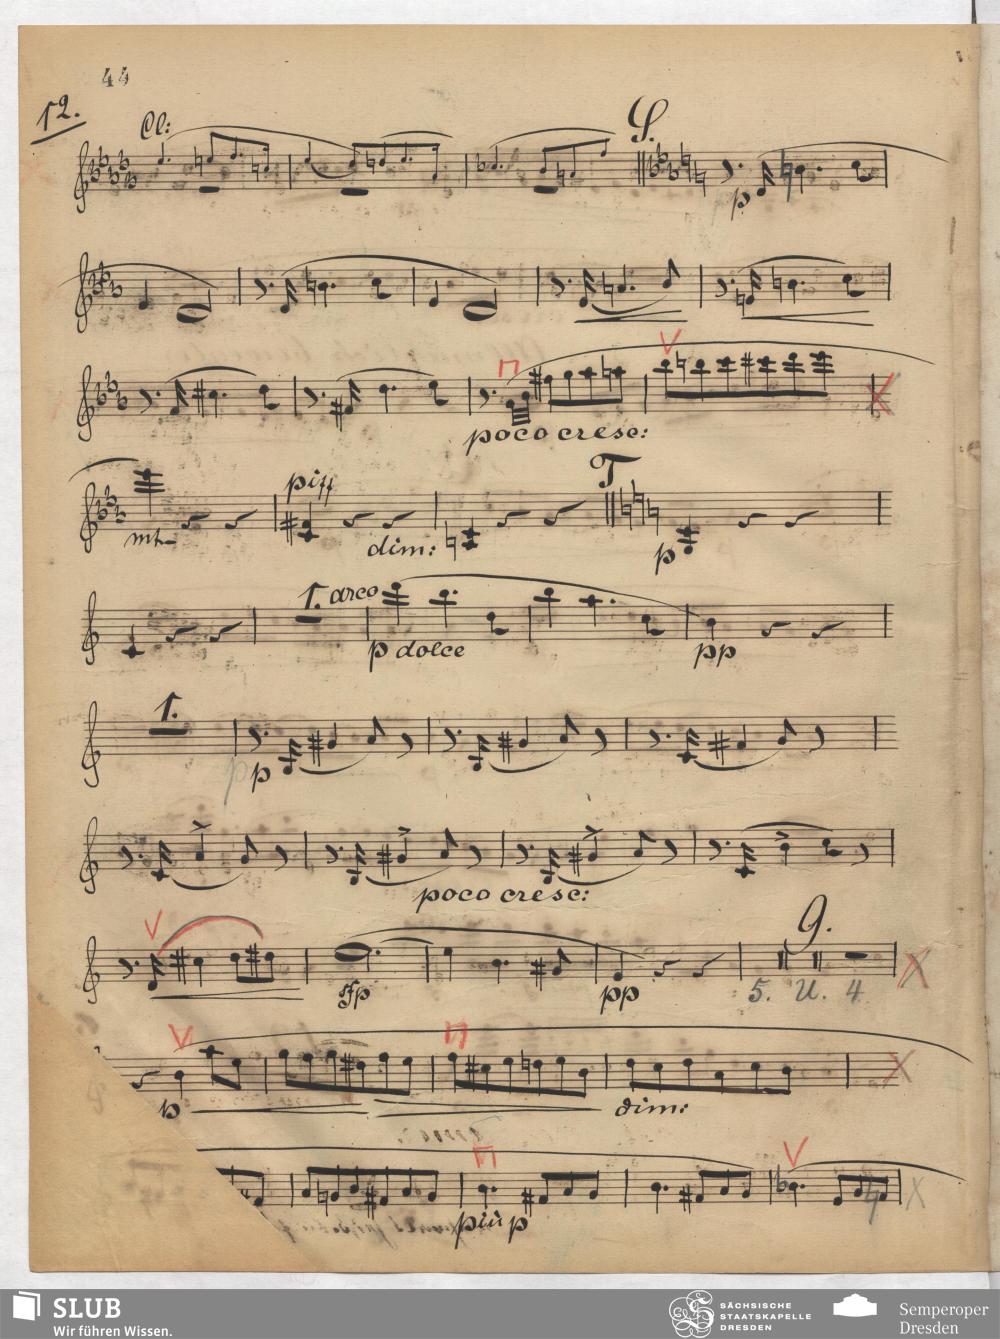 44
12.
Cl:
S.
p
poco cresc:
T
dim:
p
1. arco
p dolce
pp
1.
p
poco cresc:
9.
sfp
pp
5. u. 4
p
dim:
più p
SLUB
Wir führen Wissen.
SÄCHSISCHE
STAATSKAPELLE
DRESDEN
Semperoper
Dresden